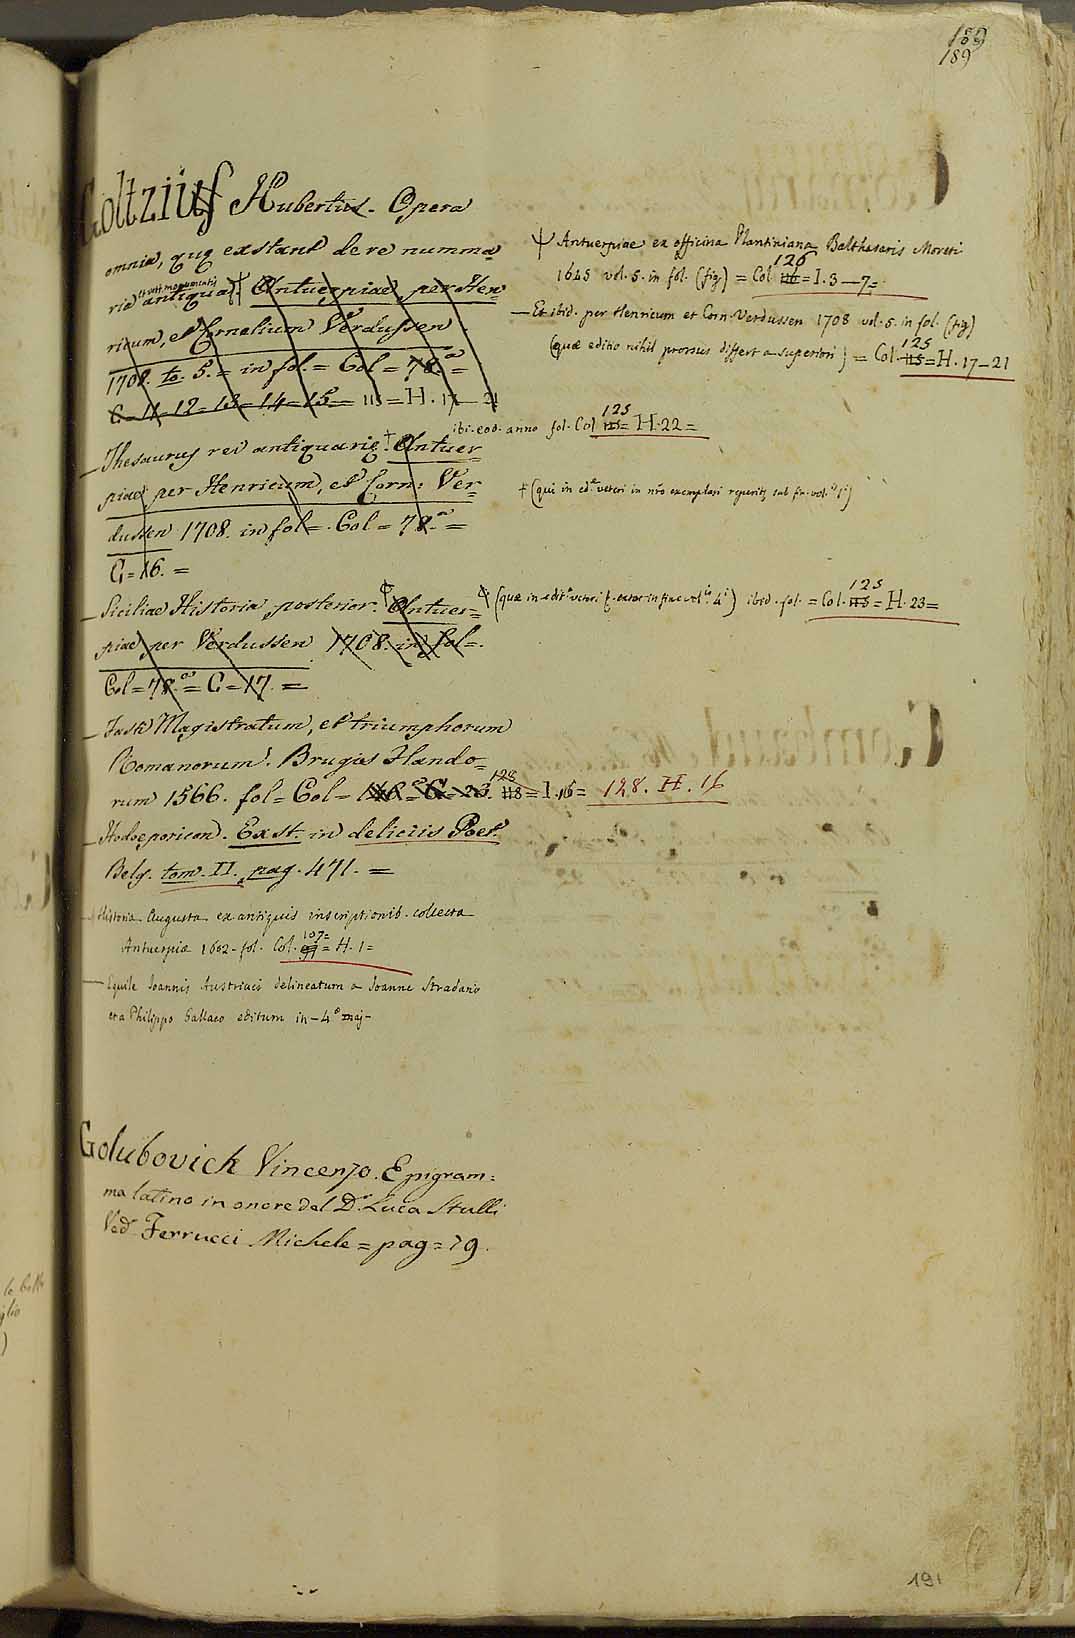 189
189
Goltzius Hubertus. Opera
omnia, quę exstant de re numma
ria et vett. monumentis antiqua. Antuerpiae, per Hen=
ricum, et Cornelium Verdussen.
1708. to. 5. = in fol. = Col = 78.a =
C = 11 = 12 = 13 = 14 = 15 = 115 = H. 17 — 21
— Thesaurus rei antiquarię. † Antuer
piae per Henricum, et Corn: Ver=
dussen 1708. in fol =. Col = 78.a =
C = 16. =
— Siciliae Historia posterior. Antuer=
piae per Verdussen 1708. in fol =.
Col = 78.a = C = 17. =
— Fasti Magistratum, et triumphorum
Romanorum. Brugis Flando=
rum 1566. fol = Col = C = 23. 118 128 = I. 16 = 128. H. 16
— Hodoeporicon. Exst. in deliciis Poet.
Belg. tom. II. pag. 471. =
— Historia Augusta ex antiquis inscriptionib. collecta
Antuerpiæ 1602 - fol. Col. 107 = H. 1 =
— Equile Joannis Austriaci delineatum a Joanne Stradano
et a Philippo Gallaeo editum in - 4.° maj -
Antuerpiae ex officina Plantiniana Balthasaris Moreti
1645 vol. 5. in fol. (fig) = Col. 116 126 = I. 3 — 7 =
— Et ibid. per Henricum et Corn. Verdussen 1708 vol. 5. in fol. (fig)
(quæ editio nihil prorsus differt a superiori) = Col. 115 125 = H. 17 — 21
ibi. eod. anno fol. Col. 115 125 = H. 22 =
† (qui in ed.e veteri in nro exemplari reperitz sub fin. vol. 1i)
(quæ in edit.e veteri in fine vol. 4i) ibid. fol. = Col. 115 125 = H. 23 =
Golubovich Vincenzo. Epigram=
ma latino in onore del Dr. Luca Stulli
Ved. Ferrucci Michele = pag = 79.
191